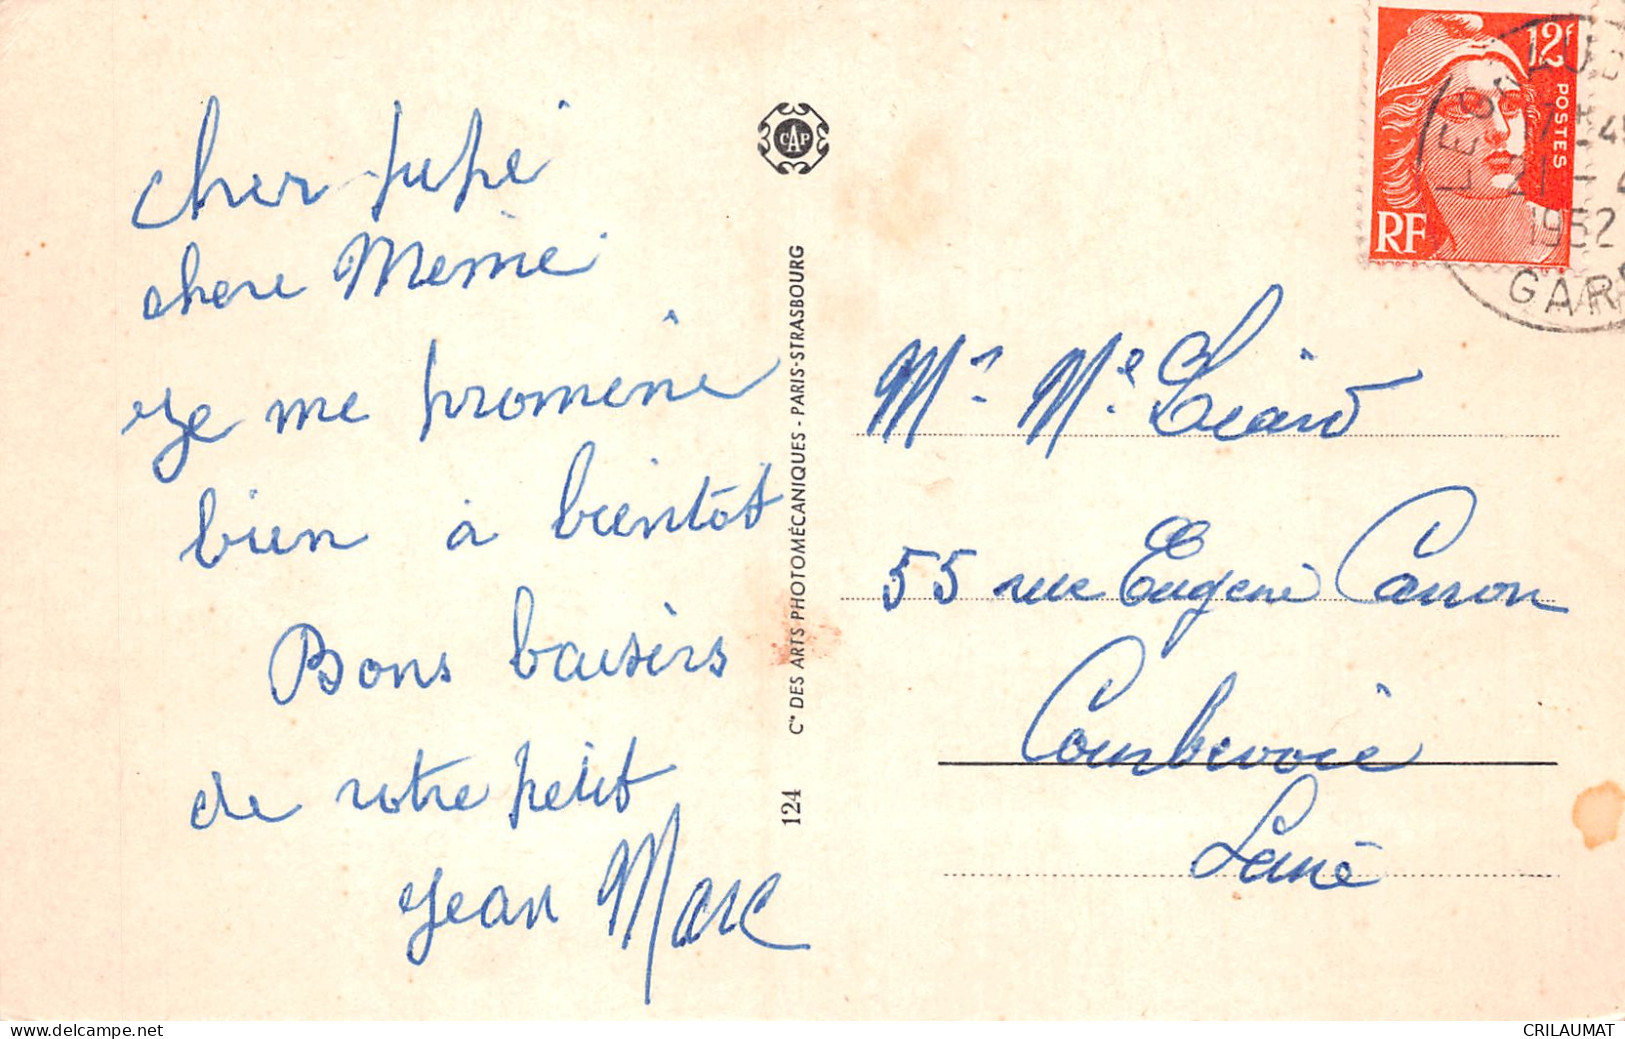 cher pepé
chere Memé
Je me promène
bien à bientôt
Bons baisers
de votre petit
Jean Marc
CAP
124 Cie DES ARTS PHOTOMÉCANIQUES - PARIS-STRASBOURG
12f
POSTES
RF
21 - 4
1952
GARD
Mr Me Liard
55 rue Eugene Caron
Courbevoie
Seine
delcampe.net
CRILAUMAT